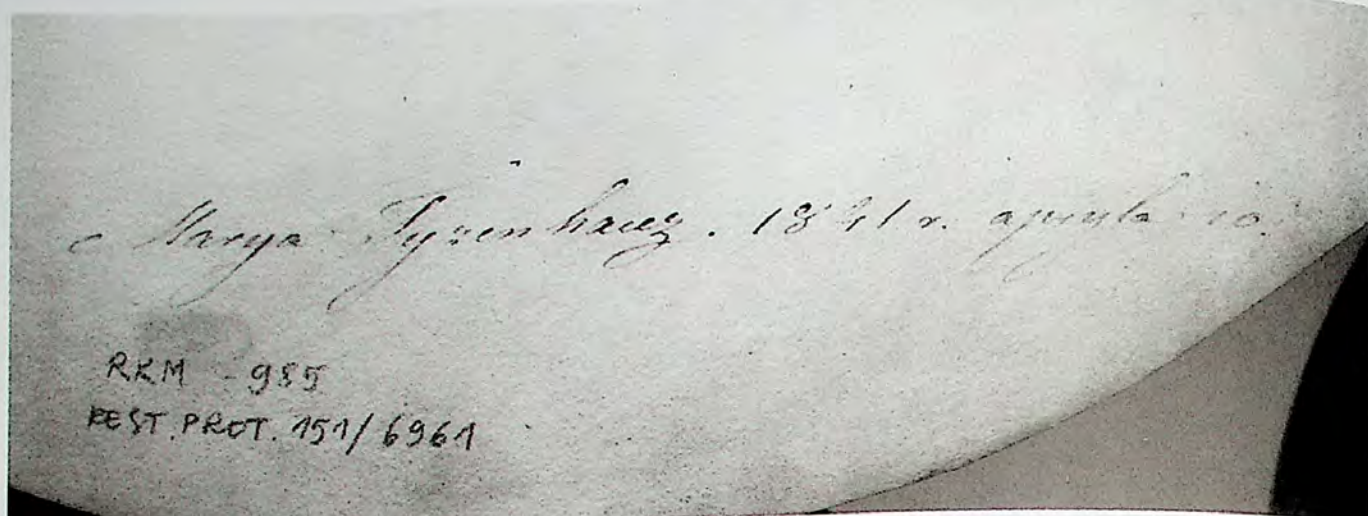 Marya Tyzenhauz. 1841 r. apryla 10.
RKM - 985
REST. PROT. 151/6961